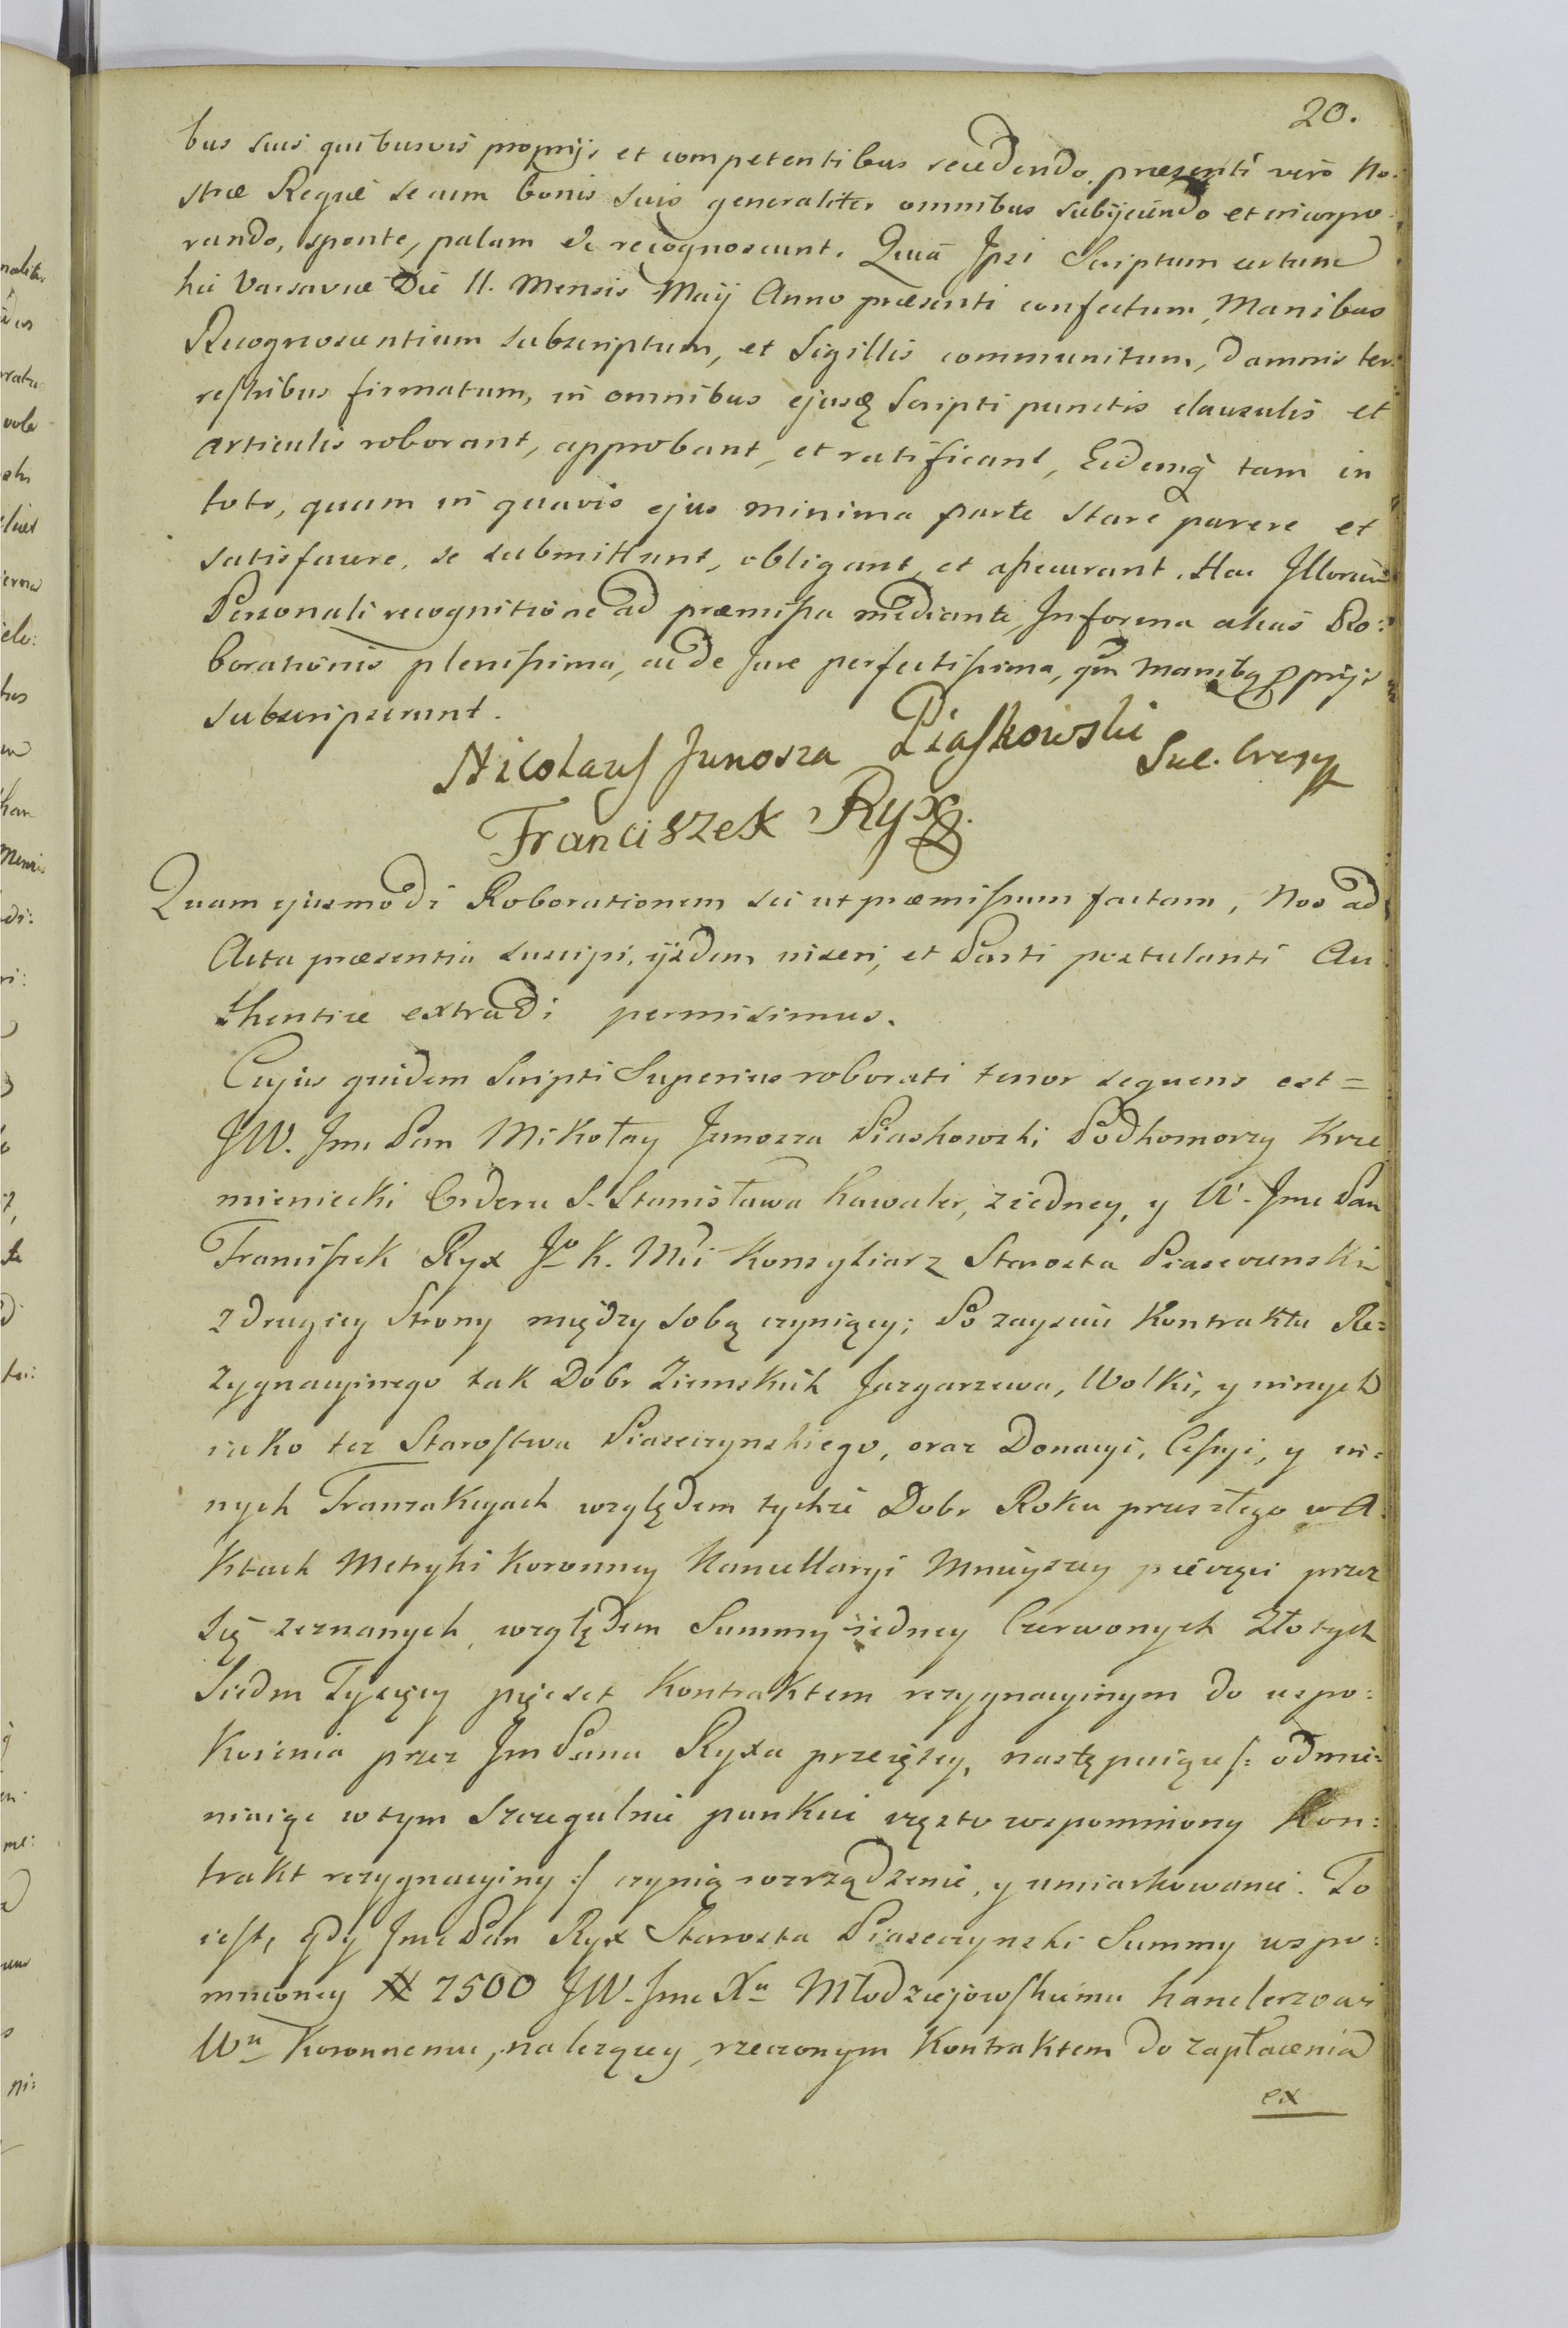 20.
bus suis quibusvis proprijs et competentibus recedendo, præsenti verò No:
stræ Regiæ se cum bonis suis generaliter omnibus subijciendo et incorpo:
rando, sponte, palam &c recognoscunt. Quia Ipsi Scriptum certum
hic Varsaviæ Die 11. Mensis Maij Anno præsenti confectum, Manibus
Recognoscentium subscriptum, et Sigillis communitum, damnis ter:
restribus firmatum, in omnibus ejusq Scripti punctis clausulis et
articulis roborant, approbant, et ratificant, Eidemq tam in
toto, quam in quavis ejus minima parte stare parere et
satisfacere, se submittunt, obligant, et assecurant. Hac Illorum
Personali recognitione ad præmissa mediante, In forma alias Ro:
borationis plenissima, ac de Jure perfectissima, qm Manibq pprijs
subscripserunt.
Nicolaus Junosza Piaskowski Suc. Crem
Franciszek Ryx
Quam ejusmodi Roborationem sic ut præmissum factam, Nos ad
Acta præsentia suscipi, ijsdem inseri, et Parti postulanti Au
thentice extradi permisimus.
Cujus quidem Scripti Superius roborati tenor sequens est =
JW. Jmc Pan Mikołay Junosza Piaskowski Podkomorzy Krze
mieniecki Orderu S. Stanisława Kawaler, z iedney, y W. Jmc Pan
Franciszek Ryx Jo K. Mci Konsyliarz Starosta Piaseczenski
z drugiey Strony między sobą czyniący; Po zayściu Kontraktu Re:
zygnacyinego tak Dobr Ziemskich Jazgarzewa, Wolki, y innych
iako tez Starostwa Piaseczynskiego, oraz Donacyi, Cessyi, y in:
nych Tranzakcyach względem tychże Dobr Roku przeszłego w A:
ktach Metryki Koronney Kancellaryi Mnieyszey pieczęci przez
się zeznanych, względem Summy iedney Czerwonych Złotych
Siedm Tysięcy pięcset Kontraktem rezygnacyinym do uspo:
koienia przez Jm Pana Ryxa przeiętey, następuiące /: odmie:
niaiąc w tym szczegulnie punkcie często wzpomniony Kon:
trakt rezygnacyiny :/ czynią rozrządzenie, y umiarkowanie. To
iest, gdy Jmc Pan Ryx Starosta Piaseczynski Summy wspo:
mnioney # 7500 JW. Jmc Xu Młodzieiowskiemu Kanclerzowi
Wu Koronnemu, należącey, rzeczonym Kontraktem do zapłacenia
ex